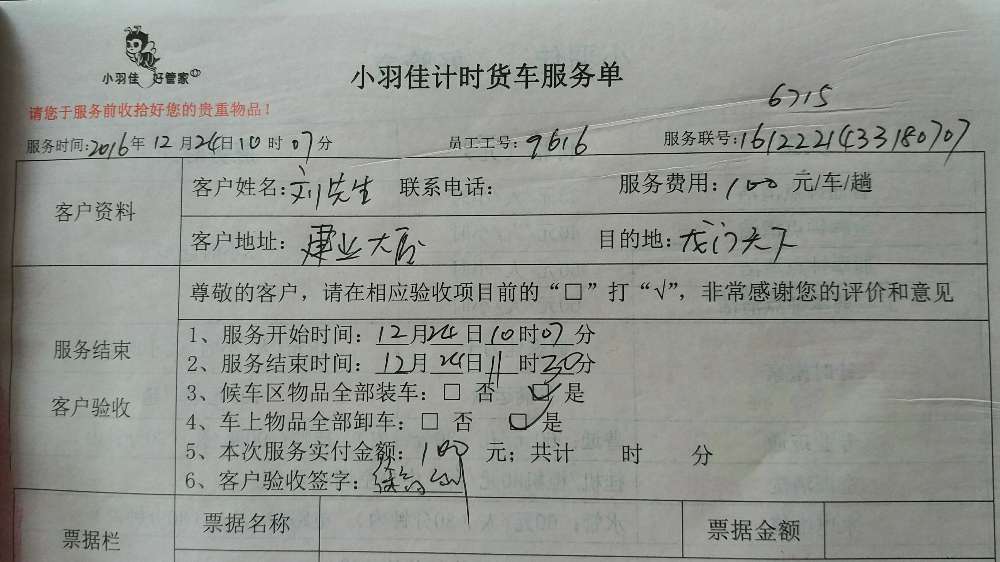 小羽佳 好管家
小羽佳计时货车服务单
请您于服务前收拾好您的贵重物品！
6715
服务时间：2016年12月24日10时07分 员工工号：9616 服务联号：1612221433180707
客户资料
客户姓名：刘先生 联系电话： 服务费用：100元/车/趟
客户地址：建业大厦 目的地：龙门天下
服务结束
客户验收
尊敬的客户，请在相应验收项目前的“□”打“√”，非常感谢您的评价和意见
1、服务开始时间：12月24日10时07分
2、服务结束时间：12月24日11时30分
3、候车区物品全部装车：□ 否 ☑ 是
4、车上物品全部卸车：□ 否 ☑ 是
5、本次服务实付金额：100元；共计 时 分
6、客户验收签字：
票据栏
票据名称 票据金额